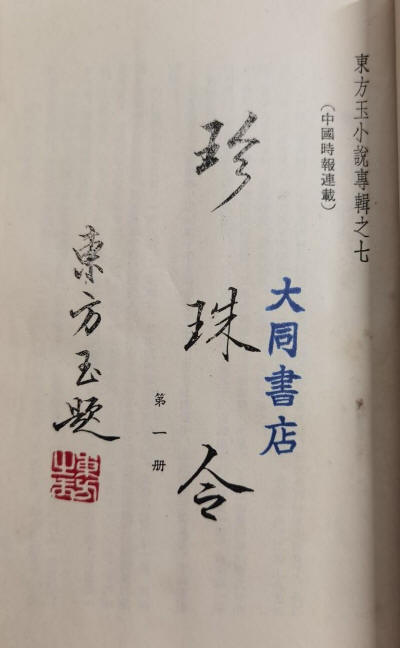 東方玉小說專輯之七
(中國時報連載)
大同書店
珍珠令
第一册
東方玉題
東方之玉